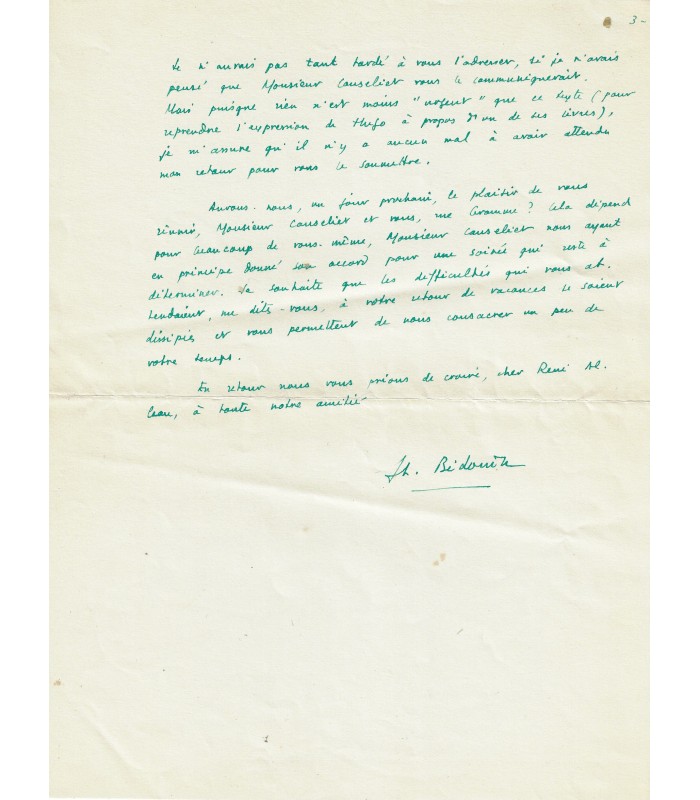 3-
Je n'aurais pas tant tardé à vous l'adresser, si je n'avais
pensé que Monsieur Canseliet vous le communiquerait.
Mais puisque rien n'est moins "urgent" que ce texte (pour
reprendre l'expression de Hugo à propos d'un de ses livres),
je m'assure qu'il n'y a aucun mal à avoir attendu
mon retour pour vous le soumettre.
Aurons-nous, un jour prochain, le plaisir de vous
réunir, Monsieur Canseliet et vous, rue Gramme? Cela dépend
pour beaucoup de vous-même, Monsieur Canseliet nous ayant
en principe donné son accord pour une soirée qui reste à
déterminer. Je souhaite que les difficultés qui vous at-
tendaient, me dites-vous, à votre retour de vacances se soient
dissipées et vous permettent de nous consacrer un peu de
votre temps.
En retour nous vous prions de croire, cher René Al-
leau, à toute notre amitié